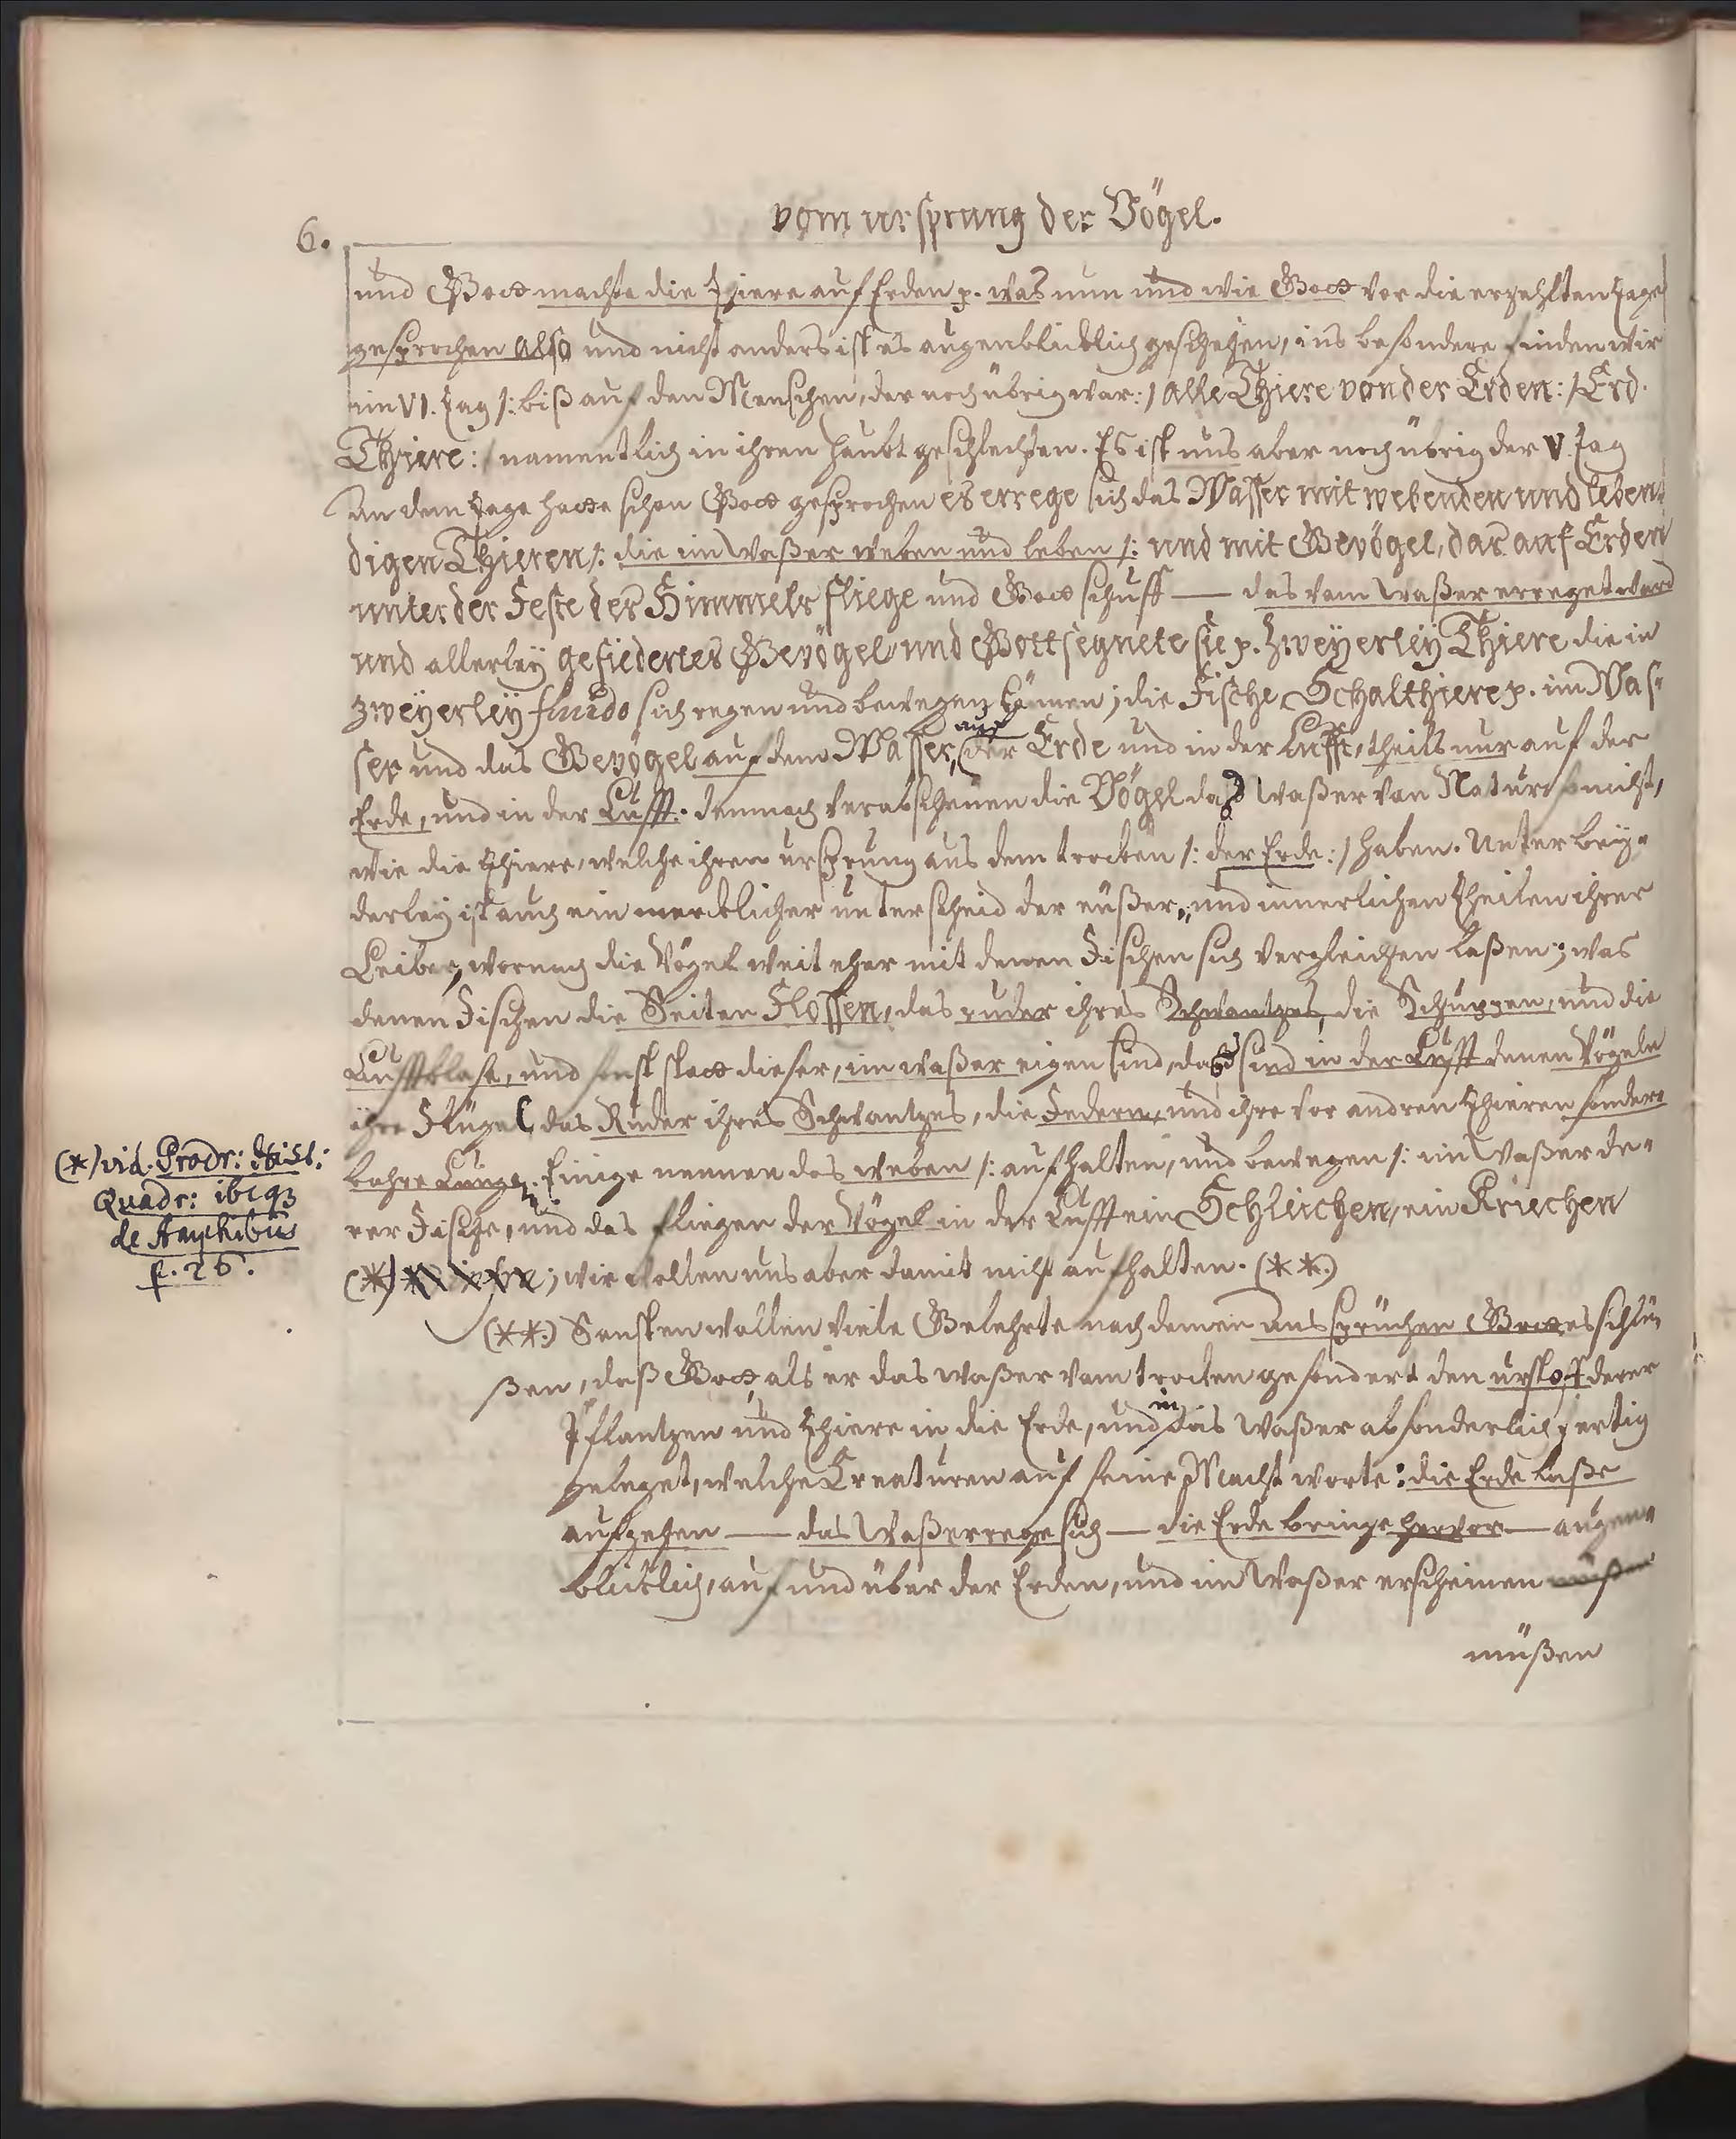 6.
vom ursprung der Vögel.
und Gott machte die Thiere auf Erden p. was nun und wie Gott vor die erzehlten Tage
gesprochen also und nicht anders ist es augenblicklich geschehen, ins besondere finden wir
im VI. Tag /: biß auf den Menschen, der noch übrig war :/ alle Thiere von der Erden :/ Erd-
Thiere :/ namentlich in ihren haubt geschlechten. Es ist uns aber noch übrig der V Tag
An dem Tage hatte schon Gott gesprochen es errege sich das Wasser mit webenden und leben-
digen Thieren /: die im Waßer weben und leben /: und mit Gevögel, das auf Erden
unter der Feste des Himmels fliege und Gott schuff — das vom Waßer erreget ward
und allerleÿ gefiedertes Gevögel und Gott segnete sie p. Zweÿerleÿ Thiere die in
zweÿerleÿ fluido sich regen und bewegen können; die Fische Schalthiere p. im Was-
ser und das Gevögel auf dem Wasser, auf der Erde und in der Lufft, theils nur auf der
Erde, und in der Lufft. demnach verabscheuen die Vögel das Waßer von Natur so nicht,
wie die Thiere, welche ihren ursprung aus dem trocken /: der Erde :/ haben. Unter beÿ-
derleÿ ist auch ein mercklicher unterscheid der eüßer- und innerlichen Theilen ihrer
Leiber, wornach die Vögel weit eher mit denen Fischen sich vergleichen laßen; was
denen Fischen die Seiten Flossen, das ruder ihres Schwantzes, die Schuppen, und die
Lufftblase, und sonst statt dieser, im waßer eigen sind, das sind in der Lufft denen Vögeln
ihre Flügel, das Ruder ihres Schwantzes, die Federn, und ihre vor andren Thieren sonder-
bahre Lungen. Einige nennen das weben /: aufhalten, und bewegen /: im Waßer de-
rer Fische, und das fliegen der Vögel in der Lufft ein Schleichen, ein Kriechen
(*) ; wir wollen uns aber damit nicht aufhalten. (**.)
(*) vid. Prodr: Hist:
Quadr: ibiq3
de Amphibiis
p. 26.
(**.) Sonsten wollen viele Gelehrte nach denen aussprüchen Gottes schlü-
ßen, daß Gott, als er das waßer vom trocken gesondert den urstoff derer
Pflantzen und Thiere in die Erde, und in das Waßer absonderlich fertig
geleget, welche Creaturen auf seine Macht worte: die Erde laße
aufgehen — das Waßer rege sich — die Erde bringe hervor — augen-
blicklich, auf und über der Erden, und im Waßer erscheinen
müßen